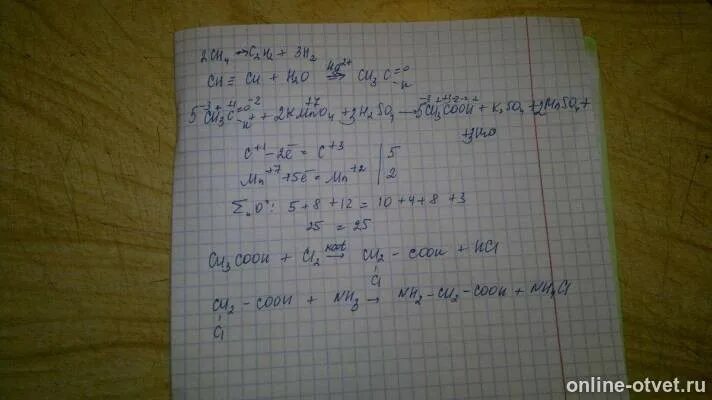 2CH₄ → C₂H₂ + 3H₂
CH ≡ CH + H₂O Hg²⁺ ⇒ CH₃ C =O -H
5 CH₃C =O -H + 2KMnO₄ + 3H₂SO₄ → 5CH₃COOH + K₂SO₄ + 2MnSO₄ +
+3H₂O
C⁺¹ - 2ē = C⁺³ | 5
Mn⁺⁷ + 5ē = Mn⁺² | 2
Σn "O": 5 + 8 + 12 = 10 + 4 + 8 + 3
25 = 25
CH₃COOH + Cl₂ kat → CH₂ - COOH + HCl
Cl
CH₂ - COOH + NH₃ → NH₂ - CH₂ - COOH + NH₄Cl
Cl
online-otvet.ru